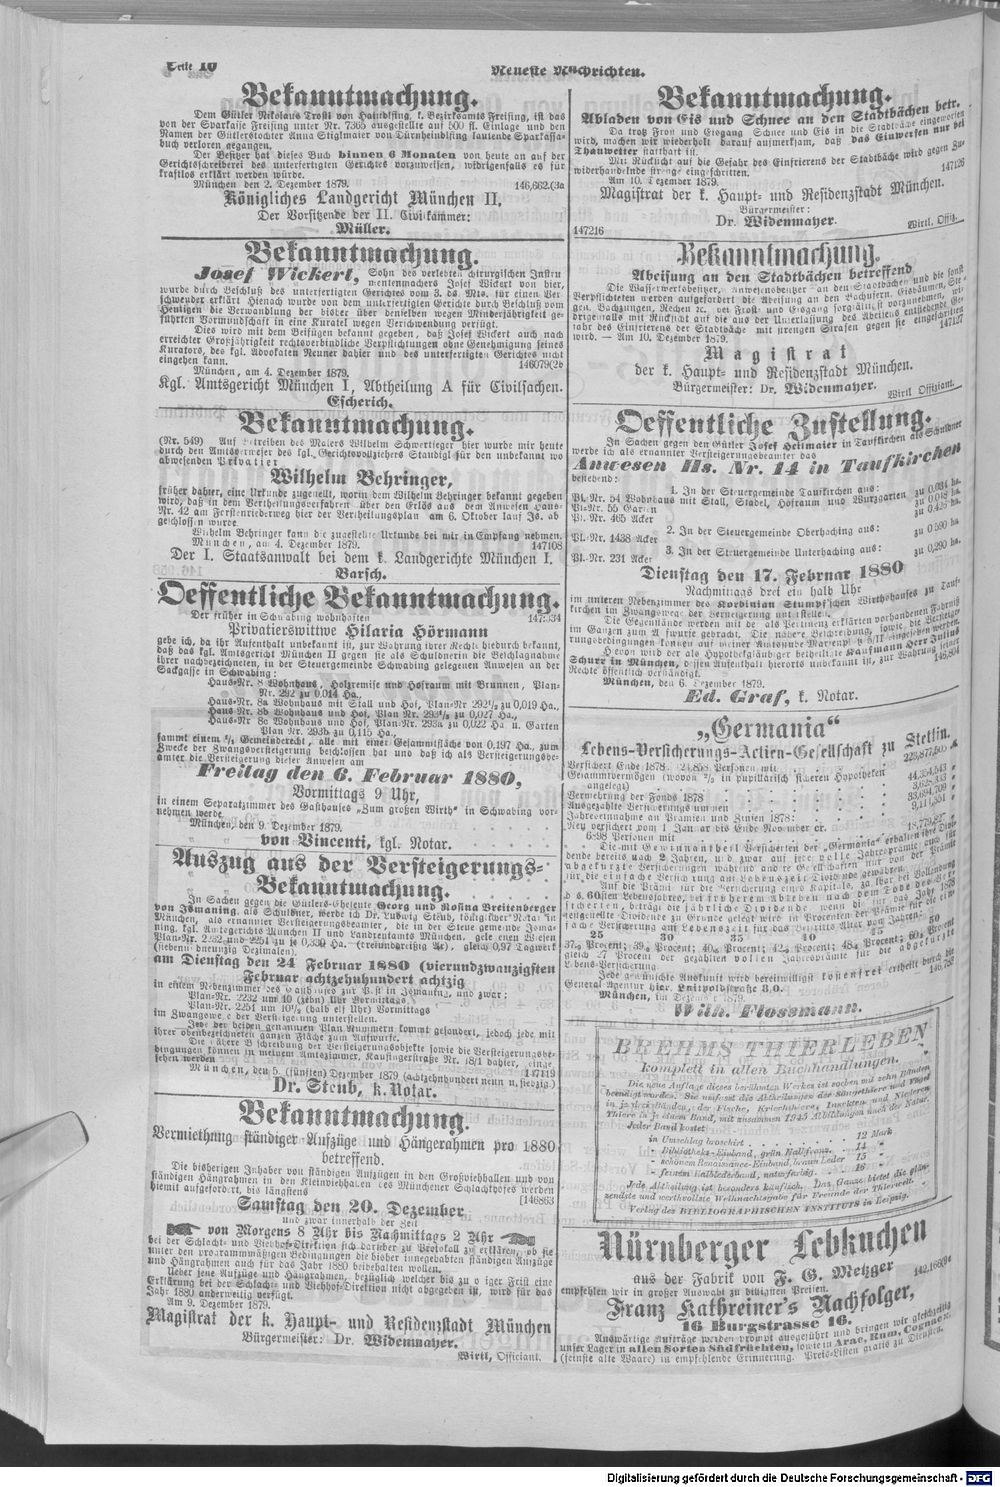 Seite 10
Neueste Nachrichten.
Bekanntmachung.
Dem Gütler Nikolaus Trostl von Haindlfing, k. Bezirksamts Freising, ist das
von der Sparkasse Freising unter Nr. 7365 ausgestellte auf 500 fl. Einlage und den
Namen der Gütlerstochter Anna Stiglmaier von Dürnheindlfing lautende Sparkassa-
buch verloren gegangen.
Der Besitzer hat dieses Buch binnen 6 Monaten von heute an auf der
Gerichtschreiberei des unterfertigten Gerichtes vorzuweisen, widrigenfalls es für
kraftlos erklärt werden würde.
München den 2. Dezember 1879. 146,662.(3a
Königliches Landgericht München II,
Der Vorsitzende der II. Civilkammer:
Müller.
Bekanntmachung.
Josef Wickert, Sohn des verlebten chirurgischen Instru
mentenmachers Josef Wickert von hier,
wurde durch Beschluß des unterfertigten Gerichtes vom 3. ds. Mts. für einen Ver-
schwender erklärt. Hienach wurde von dem unterfertigten Gerichte durch Beschluß vom
Heutigen die Verwandlung der bisher über denselben wegen Minderjährigkeit ge-
führten Vormundschaft in eine Kuratel wegen Verschwendung verfügt.
Dies wird mit dem Beifügen bekannt gegeben, daß Josef Wickert auch nach
erreichter Großjährigkeit rechtsverbindliche Verpflichtungen ohne Genehmigung seines
Kurators, des kgl. Advokaten Renner dahier und des unterfertigten Gerichtes nicht
eingehen kann. 146079(2b
München, am 4. Dezember 1879.
Kgl. Amtsgericht München I, Abtheilung A für Civilsachen.
Escherich.
Bekanntmachung.
(Nr. 549) Auf Betreiben des Malers Wilhelm Schwertfeger hier wurde mir heute
durch den Amtsverweser des kgl. Gerichtsvollziehers Standigl für den unbekannt wo
abwesenden Privatier
Wilhelm Behringer,
früher dahier, eine Urkunde zugestellt, worin dem Wilhelm Behringer bekannt gegeben
wird, daß in dem Vertheilungsverfahren über den Erlös aus dem Anwesen Haus-
Nr. 42 am Forstenriederweg hier der Vertheilungsplan am 6. Oktober lauf. Js. ab-
geschlossen wurde.
Wilhelm Behringer kann die zugestellte Urkunde bei mir in Empfang nehmen.
München, am 4. Dezember 1879. 147108
Der I. Staatsanwalt bei dem k. Landgerichte München I.
Barsch.
Oeffentliche Bekanntmachung.
Der früher in Schwabing wohnhaften 147:534
Privatierswittwe Hilaria Hörmann
gebe ich, da ihr Aufenthalt unbekannt ist, zur Wahrung ihrer Rechte hiedurch bekannt,
daß das kgl. Amtsgericht München II gegen sie als Schulnerin die Beschlagnahme
ihrer nachbezeichneten, in der Steuergemeinde Schwabing gelegenen Anwesen an der
Sackgasse in Schwabing:
Haus-Nr. 8 Wohnhaus, Holzremise und Hofraum mit Brunnen, Plan-
Nr. 292 zu 0,014 Ha.,
Haus-Nr. 8a Wohnhaus mit Stall und Hof, Plan-Nr 292½ zu 0,019 Ha.,
Haus-Nr. 8b Wohnhaus und Hof, Plan Nr. 293½ zu 0,027 Ha.,
Haus-Nr 8c Wohnhaus und Hof, Plan-Nr. 293a zu 0,022 Ha u. Garten
Plan Nr. 293b zu 0,115 Ha.,
sammt einem Gemeinderecht, alle mit einer Gesammtfläche von 0,197 Ha., zum
Zwecke der Zwangsversteigerung beschlossen hat und daß ich als Versteigerungsbe-
amter die Versteigerung dieser Anwesen am
Freitag den 6. Februar 1880,
Vormittags 9 Uhr,
in einem Separatzimmer des Gasthauses „Zum großen Wirth" in Schwabing vor-
nehmen werde.
München, den 9. Dezember 1879.
von Vincenti, kgl. Notar.
Auszug aus der Versteigerungs-
Bekanntmachung.
In Sachen gegen die Gütlers-Eheleute Georg und Rosina Breitenberger
von Ismaning, als Schuldner, werde ich Dr. Ludwig Steub, königlicher Notar in
München, als ernannter Versteigerungsbeamter, die in der Steuergemeinde Isma-
ning, kgl. Amtsgerichts München II und Landrentamts München, gelegenen Wiesen
Plan-Nr. 2232 und 2251 zu je 0,330 Ha. (dreiunddreißig Ar), gleich 0,97 Tagwerk
(siebenundneunzig Dezimalen),
am Dienstag den 24 Februar 1880 (vierundzwanzigsten
Februar achtzehnhundert achtzig
in einem Nebenzimmer des Gasthauses zur Post in Ismaning, und zwar:
Plan-Nr. 2232 um 10 (zehn) Uhr Vormittags
Plan-Nr. 2251 um 10½ (halb elf Uhr) Vormittags
im Zwangswege der Versteigerung unterstellen.
Jede der beiden genannten Plan Nummern kommt gesondert, jedoch jede mit
ihrer obenbezeichneten ganzen Fläche zum Aufwurfe.
Die nähere Beschreibung der Versteigerungsobjekte sowie die Versteigerungsbe-
dingungen können in meinem Amtszimmer, Kaufingerstraße Nr. 18/1 dahier, einge
sehen werden 147119
München, den 5. (fünften) Dezember 1879 (achtzehnhundert neun u. siebzig.)
Dr. Steub, k. Notar.
Bekanntmachung.
Vermiethung ständiger Aufzüge und Hängerahmen pro 1880
betreffend.
Die bisherigen Inhaber von ständigen Aufzügen in den Großviehhallen und von
ständigen Hängrahmen in den Kleinviehhallen des Münchener Schlachthofes werden
hiemit aufgefordert, bis längstens [146863
Samstag den 20. Dezember
und zwar innerhalb der Zeit
von Morgens 8 Uhr bis Nachmittags 2 Uhr
bei der Schlacht- und Viehhof-Direktion sich darüber zu Protokoll zu erklären, ob sie
unter den programmmäßigen Bedingungen die bisher innegehabten ständigen Aufzüge
und Hängrahmen auch für das Jahr 1880 beibehalten wollen.
Ueber jene Aufzüge und Hängrahmen, bezüglich welcher bis zu obiger Frist eine
Erklärung bei der Schlacht- und Viehhof-Direktion nicht abgegeben ist, wird für das
Jahr 1880 anderweitig verfügt.
Am 9. Dezember 1879.
Magistrat der k. Haupt- und Residenzstadt München
Bürgermeister: Dr. Widenmayer.
Wirtl, Offiziant.
Bekanntmachung.
Abladen von Eis und Schnee an den Stadtbächen betr.
Da trotz Frost und Eisgang Schnee und Eis in die Stadtbäche eingeworfen
wird, machen wir wiederholt darauf aufmerksam, daß das Einwerfen nur bei
Thauwetter statthaft ist.
Mit Rücksicht auf die Gefahr des Einfrierens der Stadtbäche wird gegen Zu-
widerhandelnde strenge eingeschritten. 147126
Am 10. Dezember 1879.
Magistrat der k. Haupt- und Residenzstadt München.
Bürgermeister:
Dr. Widenmayer.
147216 Wirtl, Offiz.
Bekanntmachung.
Abeisung an den Stadtbächen betreffend
Die Wasserwerksbesitzer, Anwesensbesitzer an den Stadtbächen und die sonst
Verpflichteten werden aufgefordert die Abeisung an den Bachufern, Eisbäumen, Ste-
gen, Bachzungen, Rechen 2c. bei Frost und Eisgang sorgfältigst vorzunehmen, wi-
drigenfalls mit Rücksicht auf die aus der Unterlassung des Abeisens entstehende Ge-
fahr des Einfrierens der Stadtbäche mit strengen Strafen gegen sie eingeschritten
wird. — Am 10. Dezember 1879. 147127
Magistrat
der k. Haupt- und Residenzstadt München.
Bürgermeister: Dr. Widenmayer.
Wirtl Offiziant.
Oeffentliche Zustellung.
In Sachen gegen den Gütler Josef Heilmaier in Taufkirchen als Schuldner
werde ich als ernannter Versteigerungsbeamter das
Anwesen Hs. Nr. 14 in Taufkirchen
bestehend:
1. In der Steuergemeinde Taufkirchen aus:
Pl.Nr. 54 Wohnhaus mit Stall, Stadel, Hofraum und Wurzgarten zu 0,034 ha.
Pl.-Nr. 55 Garten zu 0,018 ha.
Pl.-Nr. 465 Acker zu 0,426 ha.
2. In der Steuergemeinde Oberhaching aus:
Pl.-Nr. 1438 Acker zu 0 590 ha
3. In der Steuergemeinde Unterhaching aus:
Pl.-Nr. 231 Acker zu 0,290 ha.
Dienstag den 17. Februar 1880
Nachmittags drei ein halb Uhr
im unteren Nebenzimmer des Korbinian Stumpf'schen Wirthshauses zu Tauf-
kirchen im Zwangsweg der Versteigerung unterstellen.
Die Gegenstände werden mit de als Pertinenz erklärten vorhandenen Fahrniß
im Ganzen zum Aufwurfe gebracht. Die nähere Beschreibung, sowie die Versteige-
rungsbedingungen können auf meiner Amtsstube Marienpl 8/II eingesehen werden.
Hievon wird der als Hypothekgläubiger betheiligte Kaufmann Herr Julius
Schurr in München, dessen Aufenthalt hierorts unbekannt ist, zur Wahrung seiner
Rechte öffentlich verständigt. 146,804
München, den 6. Dezember 1879.
Ed. Graf, k. Notar.
„Germania"
Lebens-Versicherungs-Actien-Gesellschaft zu Stettin.
Versichert Ende 1878 Personen mit
Gesammtvermögen (wovon in pupillarisch sicheren Hypotheken
angelegt)
Vermehrung der Fonds 1878
Ausgezahlte Versicherungssummen
Jahreseinnahme an Prämien und Zinsen 1878:
Neu versichert vom 1 Januar bis Ende November cr.
Personen mit
Die mit Gewinnantheil Versicherten der „Germania" erhalten ihre Divi-
dende bereits nach 2 Jahren, und zwar auf jede volle Jahresprämie
München, im Dezember 1879.
Wilh. Flossmann.
BREHMS THIERLEBEN
komplett in allen Buchhandlungen.
Die neue Auflage dieses berühmten Werkes ist soeben mit zehn Bänden
beendigt worden. Sie umfasst die Abtheilungen der Säugethiere und Vögel
in je drei Bänden, der Fische, Kriechthiere, Insekten und Niederen
Thiere in je einem Band, mit zusammen 1945 Abbildungen nach der Natur.
Jeder Band kostet
in Umschlag broschirt 12 Mark
„ Bibliotheks-Einband, grün Halbfranz 14 „
„ schönem Renaissance-Einband, braun Leder 15 „
„ feinem Halblederband, naturfarbig. 16 „
Jede Abtheilung ist besonders käuflich. Das Ganze bietet die glän-
zendste und werthvollste Weihnachtsgabe für Freunde der Thierwelt.
Verlag des BIBLIOGRAPHISCHEN INSTITUTS in Leipzig.
Nürnberger Lebkuchen
aus der Fabrik von F. G. Metzger 142,166(9e
empfehlen wir in großer Auswahl zu billigsten Preisen.
Franz Kathreiner's Nachfolger,
16 Burgstrasse 16.
Auswärtige Aufträge werden prompt ausgeführt und bringen wir gleichzeitig
unser Lager in allen Sorten Südfrüchten, sowie in Arac, Rum, Cognac 2c.
(feinste alte Waare) in empfehlende Erinnerung. Preis-Listen gratis zu Diensten.
Digitalisierung gefördert durch die Deutsche Forschungsgemeinschaft - DFG